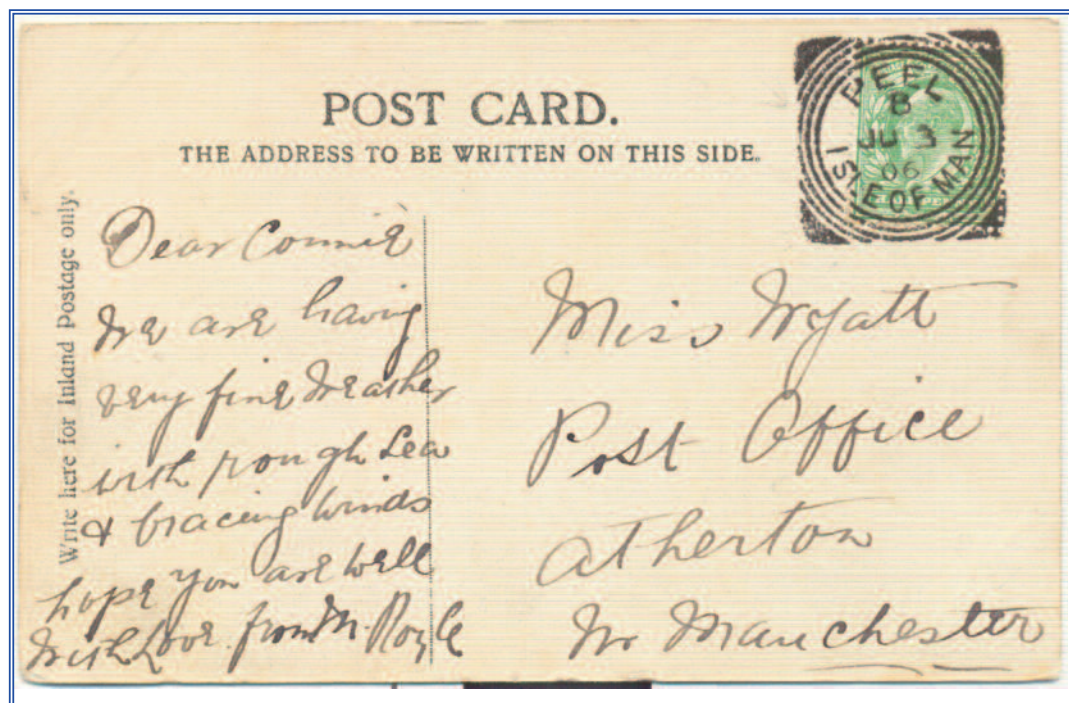 POST CARD.
THE ADDRESS TO BE WRITTEN ON THIS SIDE.
PEEL
B
JU 3
06
ISLE OF MAN
Write here for Inland Postage only.
Dear Connie
We are having
very fine Weather
with rough Sea
& bracing winds
hope you are well
With Love from M. Royle
Miss Wyatt
Post Office
Atherton
Nr Manchester